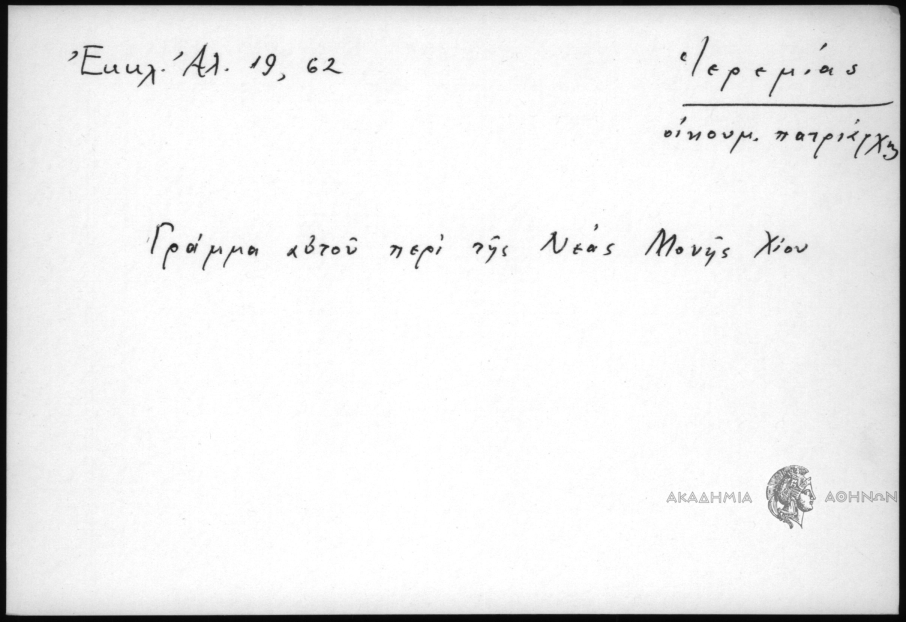 Ἐκκλ. Ἀλ. 19, 62
Ἱερεμίας
οἰκουμ. πατριάρχης
Γράμμα αὐτοῦ περὶ τῆς Νέας Μονῆς Χίου
ΑΚΑΔΗΜΙΑ ΑΘΗΝΩΝ